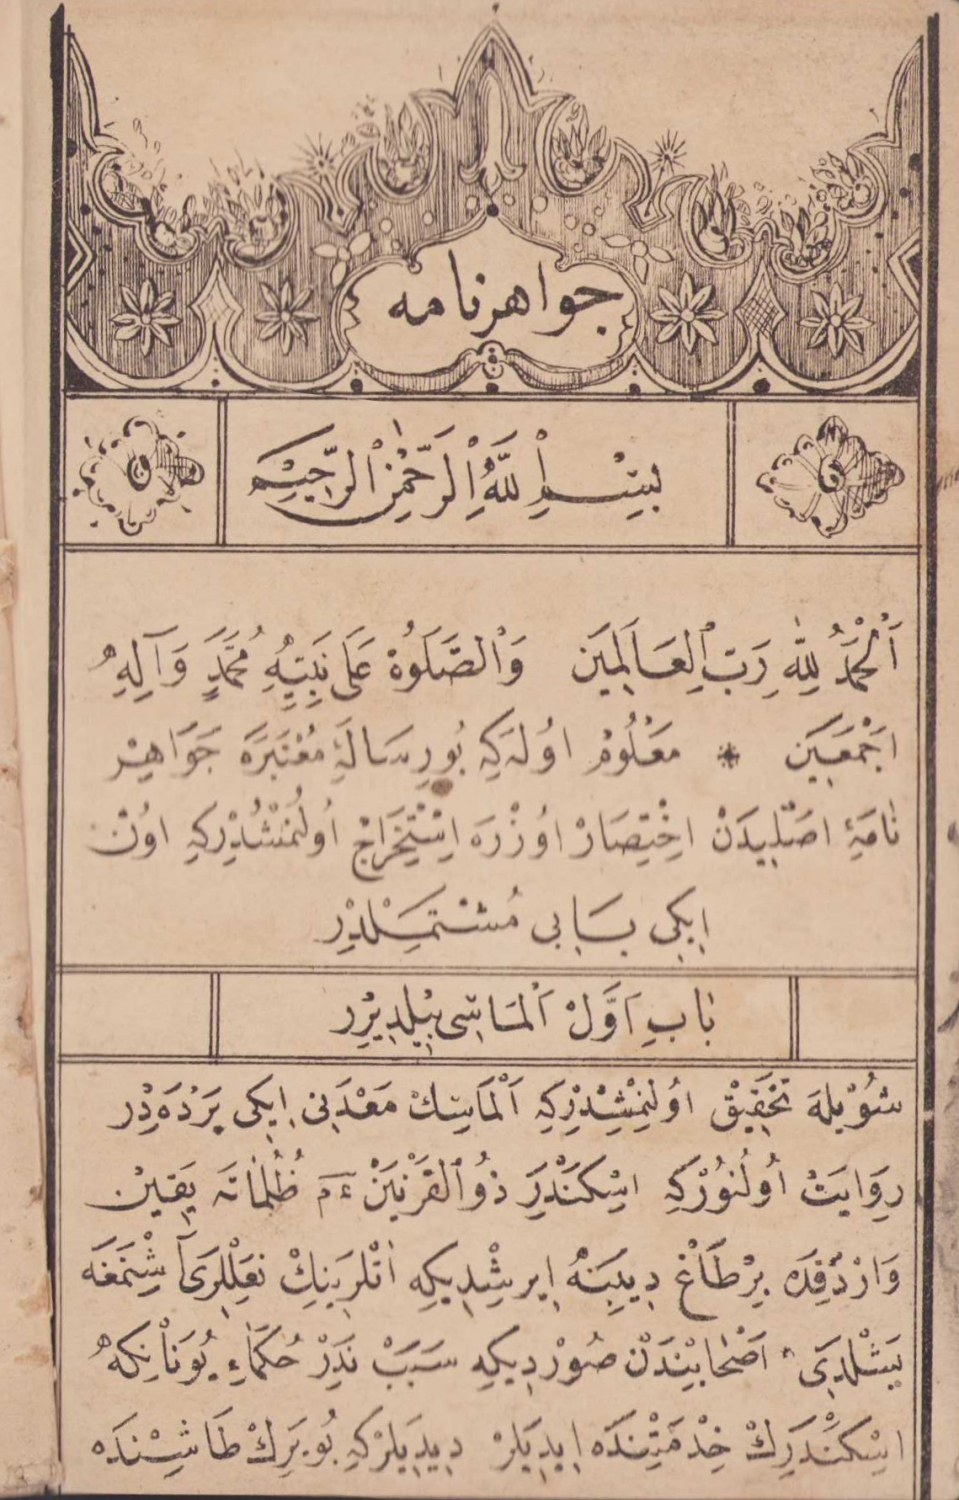 جواهرنامه
بِسْمِ اللّٰهِ الرَّحْمٰنِ الرَّحِيْمِ
اَلْحَمْدُ لِلّٰهِ رَبِّ الْعَالَمِينَ وَالصَّلَوةُ عَلَى نَبِيِّهِ مُحَمَّدٍ وَآلِهِ
اَجْمَعِينَ * مَعْلُومْ اوُلَهكِه بُو رِسَالَهٔ مُعْتَبَرَه جَوَاهِرْ
نَامَهٔ اصْلِيدَنْ اِخْتِصَارْ اوُزْرَه اِسْتِخْرَاجْ اُولُنمْشُدْركِه اوُنْ
ايكى بَابى مُشتَمِلْدِرْ
بَابِ اَوَّلْ اَلْمَاسِى بِيلدِيرِر
شُوْيلَه تَحْقِيقْ اوُلنِمْشِدْركِه اَلْمَاسِكْ مَعْدَنِى اِيكِى يَرْدَه دِْر
رِوَايَتْ اُولُنوُرْكِه اسْكَنْدَرِ ذوُالْقَرْنَيَنْ ءم ظُلُمَاتَه يَقِينْ
وَارْدُقِدَه بِرْطَاغْ دِيبِنَهْ اِيرشِْدِيكِه اَتْلَرِينِكْ نَعِلْلَرِى آشِنْمَغَه
بَشْلَدِى اَصْحَابِنْدَنْ صُوْردِيكِه سَبَبْ نَدِرْ حُكَمَاءِ يُونَانكِه
اسْكَنْدَرِكْ خِدْمَتِنْدَه ايدِيلَرْ دِيدِيلَرْكِه بُو يَرِكْ طَاشِنْدَه